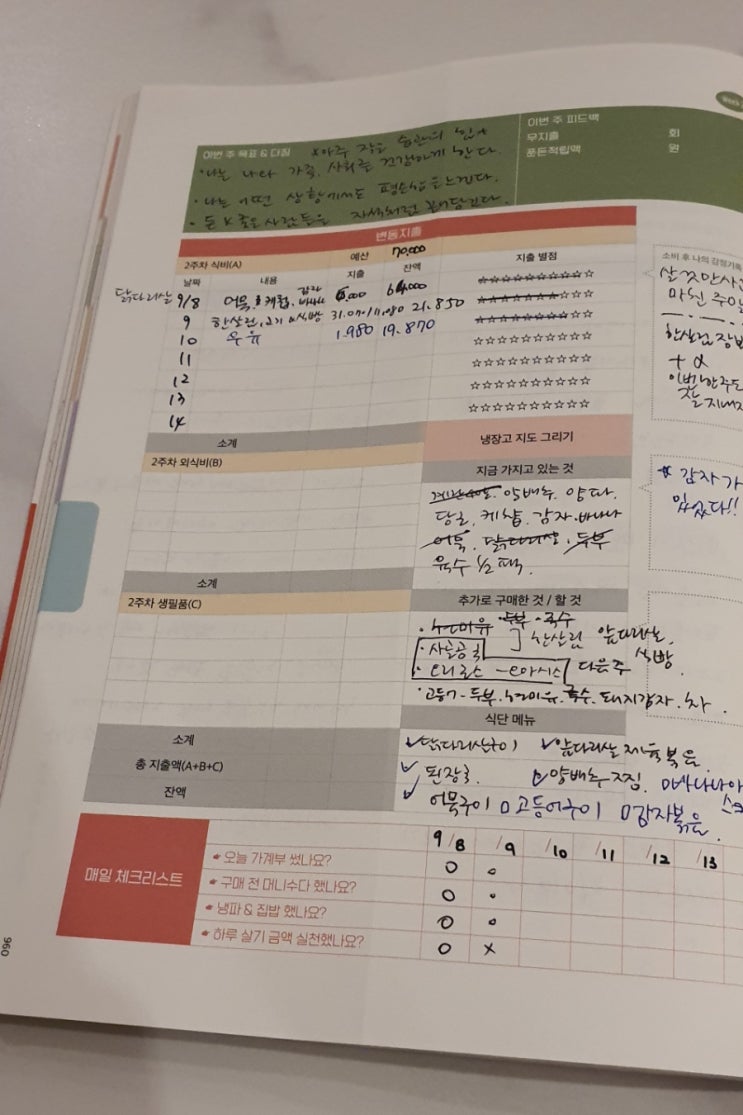 이번 주 목표 & 다짐 *아주 작은 습관의 힘*
• 나는 나와 가족, 사회를 건강하게 한다.
• 나는 어떤 상황에서도 평온함을 느낀다.
이번 주 피드백
무지출 회
푼돈적립액 원
변동지출
2주차 식비(A) 예산 70,000
날짜 내용 지출 잔액 지출 별점
닭다리살 9/8 어묵 케찹, 감자 바나나 6,000 64,000 ☆☆☆☆☆☆☆☆☆☆
9 한살림, 고기 식빵 31.070/11.080 21.850 ☆☆☆☆☆☆☆☆☆☆
10 우유 1.980 19.870 ☆☆☆☆☆☆☆☆☆☆
11 ☆☆☆☆☆☆☆☆☆☆
12 ☆☆☆☆☆☆☆☆☆☆
13 ☆☆☆☆☆☆☆☆☆☆
14 ☆☆☆☆☆☆☆☆☆☆
소계
2주차 외식비(B)
소계
2주차 생필품(C)
소계
총 지출액(A+B+C)
잔액
냉장고 지도 그리기
지금 가지고 있는 것
양배추. 양파.
당근. 케찹. 감자. 바나나
어묵. 닭다리살. 두부
육수 1/2팩.
추가로 구매한 것 / 할 것
• 현미유 두부 • 국수
한살림 앞다리살,
• 사골곰국 식빵
다음주
• 고등어 - 두부. 현미유. 국수. 돼지감자. 차.
식단 메뉴
✓ 닭다리살구이 ✓ 앞다리살 제육볶음
✓ 된장국 양배추찜. 바나나
✓ 어묵구이 고등어구이 감자볶음.
소비 후 나의 감정기록
한살림 장
+ α
* 감자가
있었다!!
매일 체크리스트
9/8 /9 /10 /11 /12 /13
오늘 가계부 썼나요? O O
구매 전 머니수다 했나요? O O
냉파 & 집밥 했나요? O O
하루 살기 금액 실천했나요? O X
096